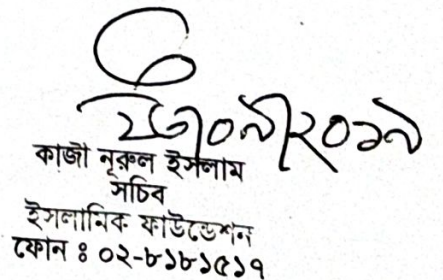 কাজী নূরুল ইসলাম
সচিব
ইসলামিক ফাউন্ডেশন
ফোন ঃ ০২-৮১৮১৫১৭